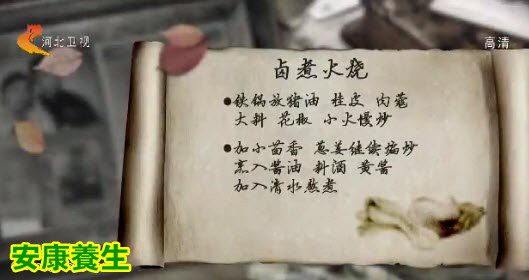 河北卫视
高清
卤煮火烧
●铁锅放猪油 桂皮 肉蔻
大料 花椒 小火慢炒
●加小茴香 葱姜继续煸炒
烹入酱油 料酒 黄酱
加入清水熬煮
安康養生